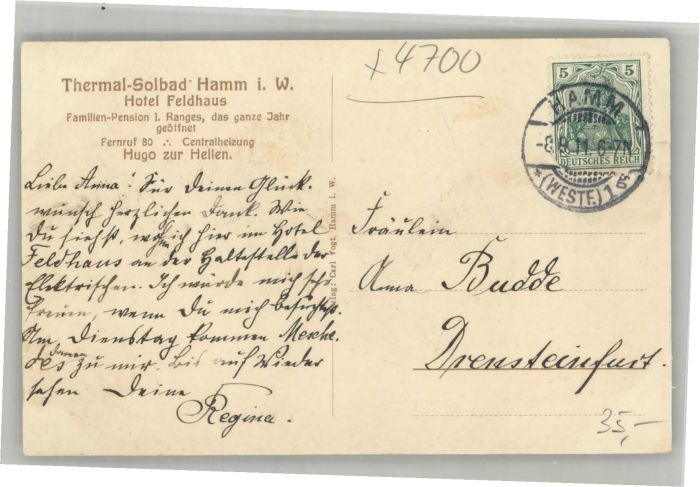 x 4700
Thermal-Solbad Hamm i. W.
Hotel Feldhaus
Familien-Pension I. Ranges, das ganze Jahr
geöffnet
Fernruf 80 ∴ Centralheizung
Hugo zur Hellen.
Liebe Anna! Für Deinen Glück-
wunsch herzlichen Dank. Wie
Du siehst, wohne ich hier im Hotel
Feldhaus an der Haltestelle der
Elektrischen. Ich würde mich sehr
freuen, wenn Du mich besuchst.
Am Dienstag kommen
Damen
zu mir. Bis auf Wieder
sehen Deine
Regina.
Verlag: Carl Vogt, Hamm i. W.
5 5
DEUTSCHES REICH
HAMM
11. 6-7N
*(WESTF.) 1
Fräulein
Anna Budde
Drensteinfurt.
35,-